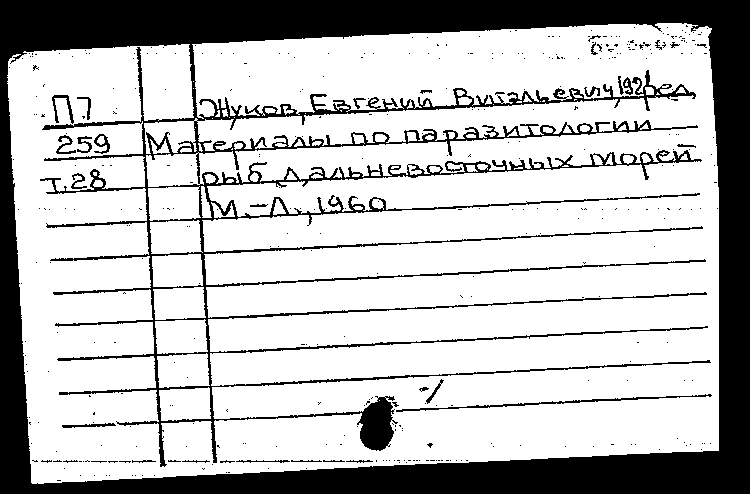 П7 Жуков, Евгений Витальевич, ред.
259 Материалы по паразитологии
т.28 рыб дальневосточных морей
М.-Л., 1960